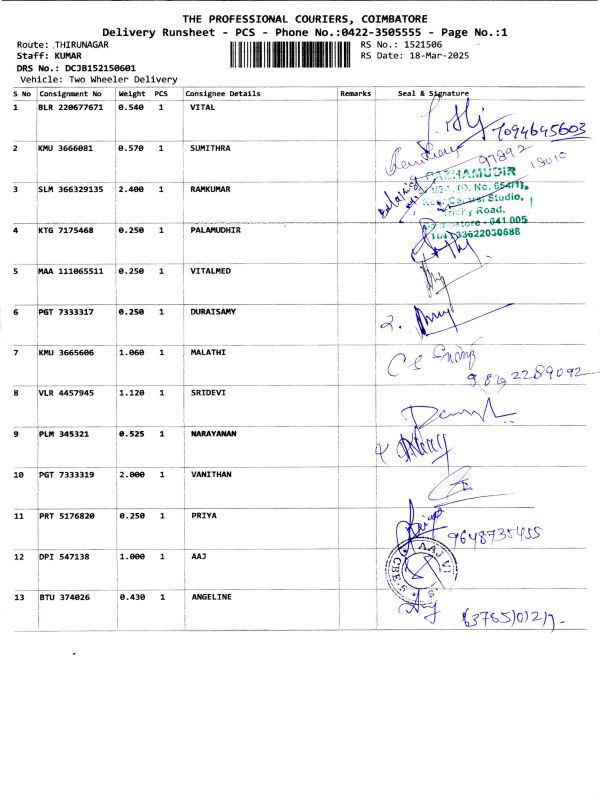 THE PROFESSIONAL COURIERS, COIMBATORE
Delivery Runsheet - PCS - Phone No.:0422-3505555 - Page No.:1
Route: .THIRUNAGAR RS No.: 1521506
Staff: KUMAR RS Date: 18-Mar-2025
DRS No.: DCJB152150601
Vehicle: Two Wheeler Delivery
S No Consignment No Weight PCS Consignee Details Remarks Seal & Signature
1 BLR 220677671 0.540 1 VITAL
7094645603
2 KMU 3666081 0.570 1 SUMITHRA
97892
18010
3 SLM 366329135 2.400 1 RAMKUMAR
PAZHAMUDIR
Studio,
Road,
641 005
33622030688
4 KTG 7175468 0.250 1 PALAMUDHIR
5 MAA 111065511 0.250 1 VITALMED
6 PGT 7333317 0.250 1 DURAISAMY
2.
7 KMU 3665606 1.060 1 MALATHI
2289092
8 VLR 4457945 1.120 1 SRIDEVI
9 PLM 345321 0.525 1 NARAYANAN
10 PGT 7333319 2.000 1 VANITHAN
11 PRT 5176820 0.250 1 PRIYA
9648735455
12 DPI 547138 1.000 1 AAJ
AAJ
CBE-5
13 BTU 374026 0.430 1 ANGELINE